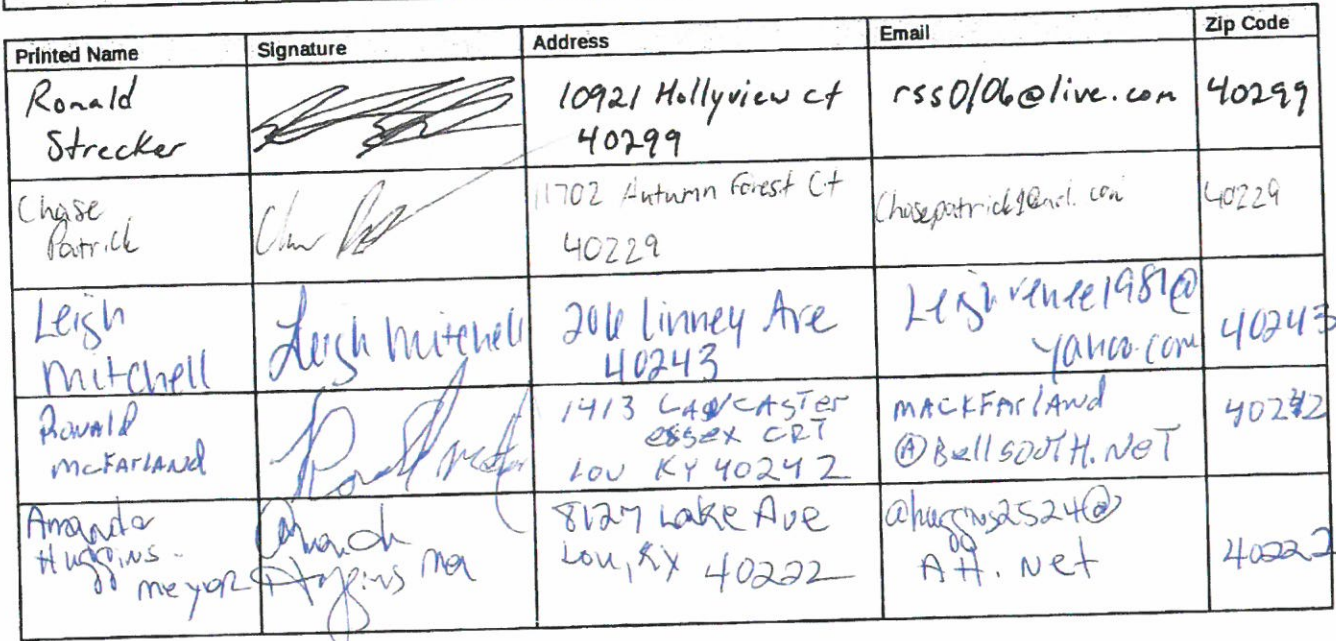 Printed Name Signature Address Email Zip Code
Ronald
Strecker
10921 Hollyview ct
40299
rss0106@live.com
40299
Chase
Patrick
11702 Autumn Forest Ct
40229
40229
Leigh
Mitchell
Leigh Mitchell
206 Linney Ave
40243
Leighrenee1981@
yahoo.com
40243
Ronald
McFarland
1413 LANCASTER
essex CRT
LOU KY 40242
MACKFArlANd
@BellSOUTH.NET
40242
Amanda
Huggins-
meyer
8127 Lake Ave
Lou, Ky 40222
ahuggins2524@
Att.net
40222